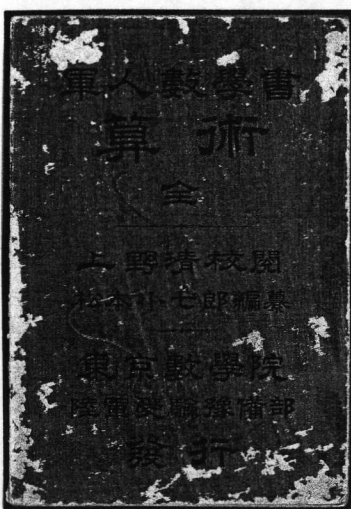 軍人數學書
算術
全
上野清校閲
松本小七郎編纂
東京數學院
陸軍受驗豫備部
發行